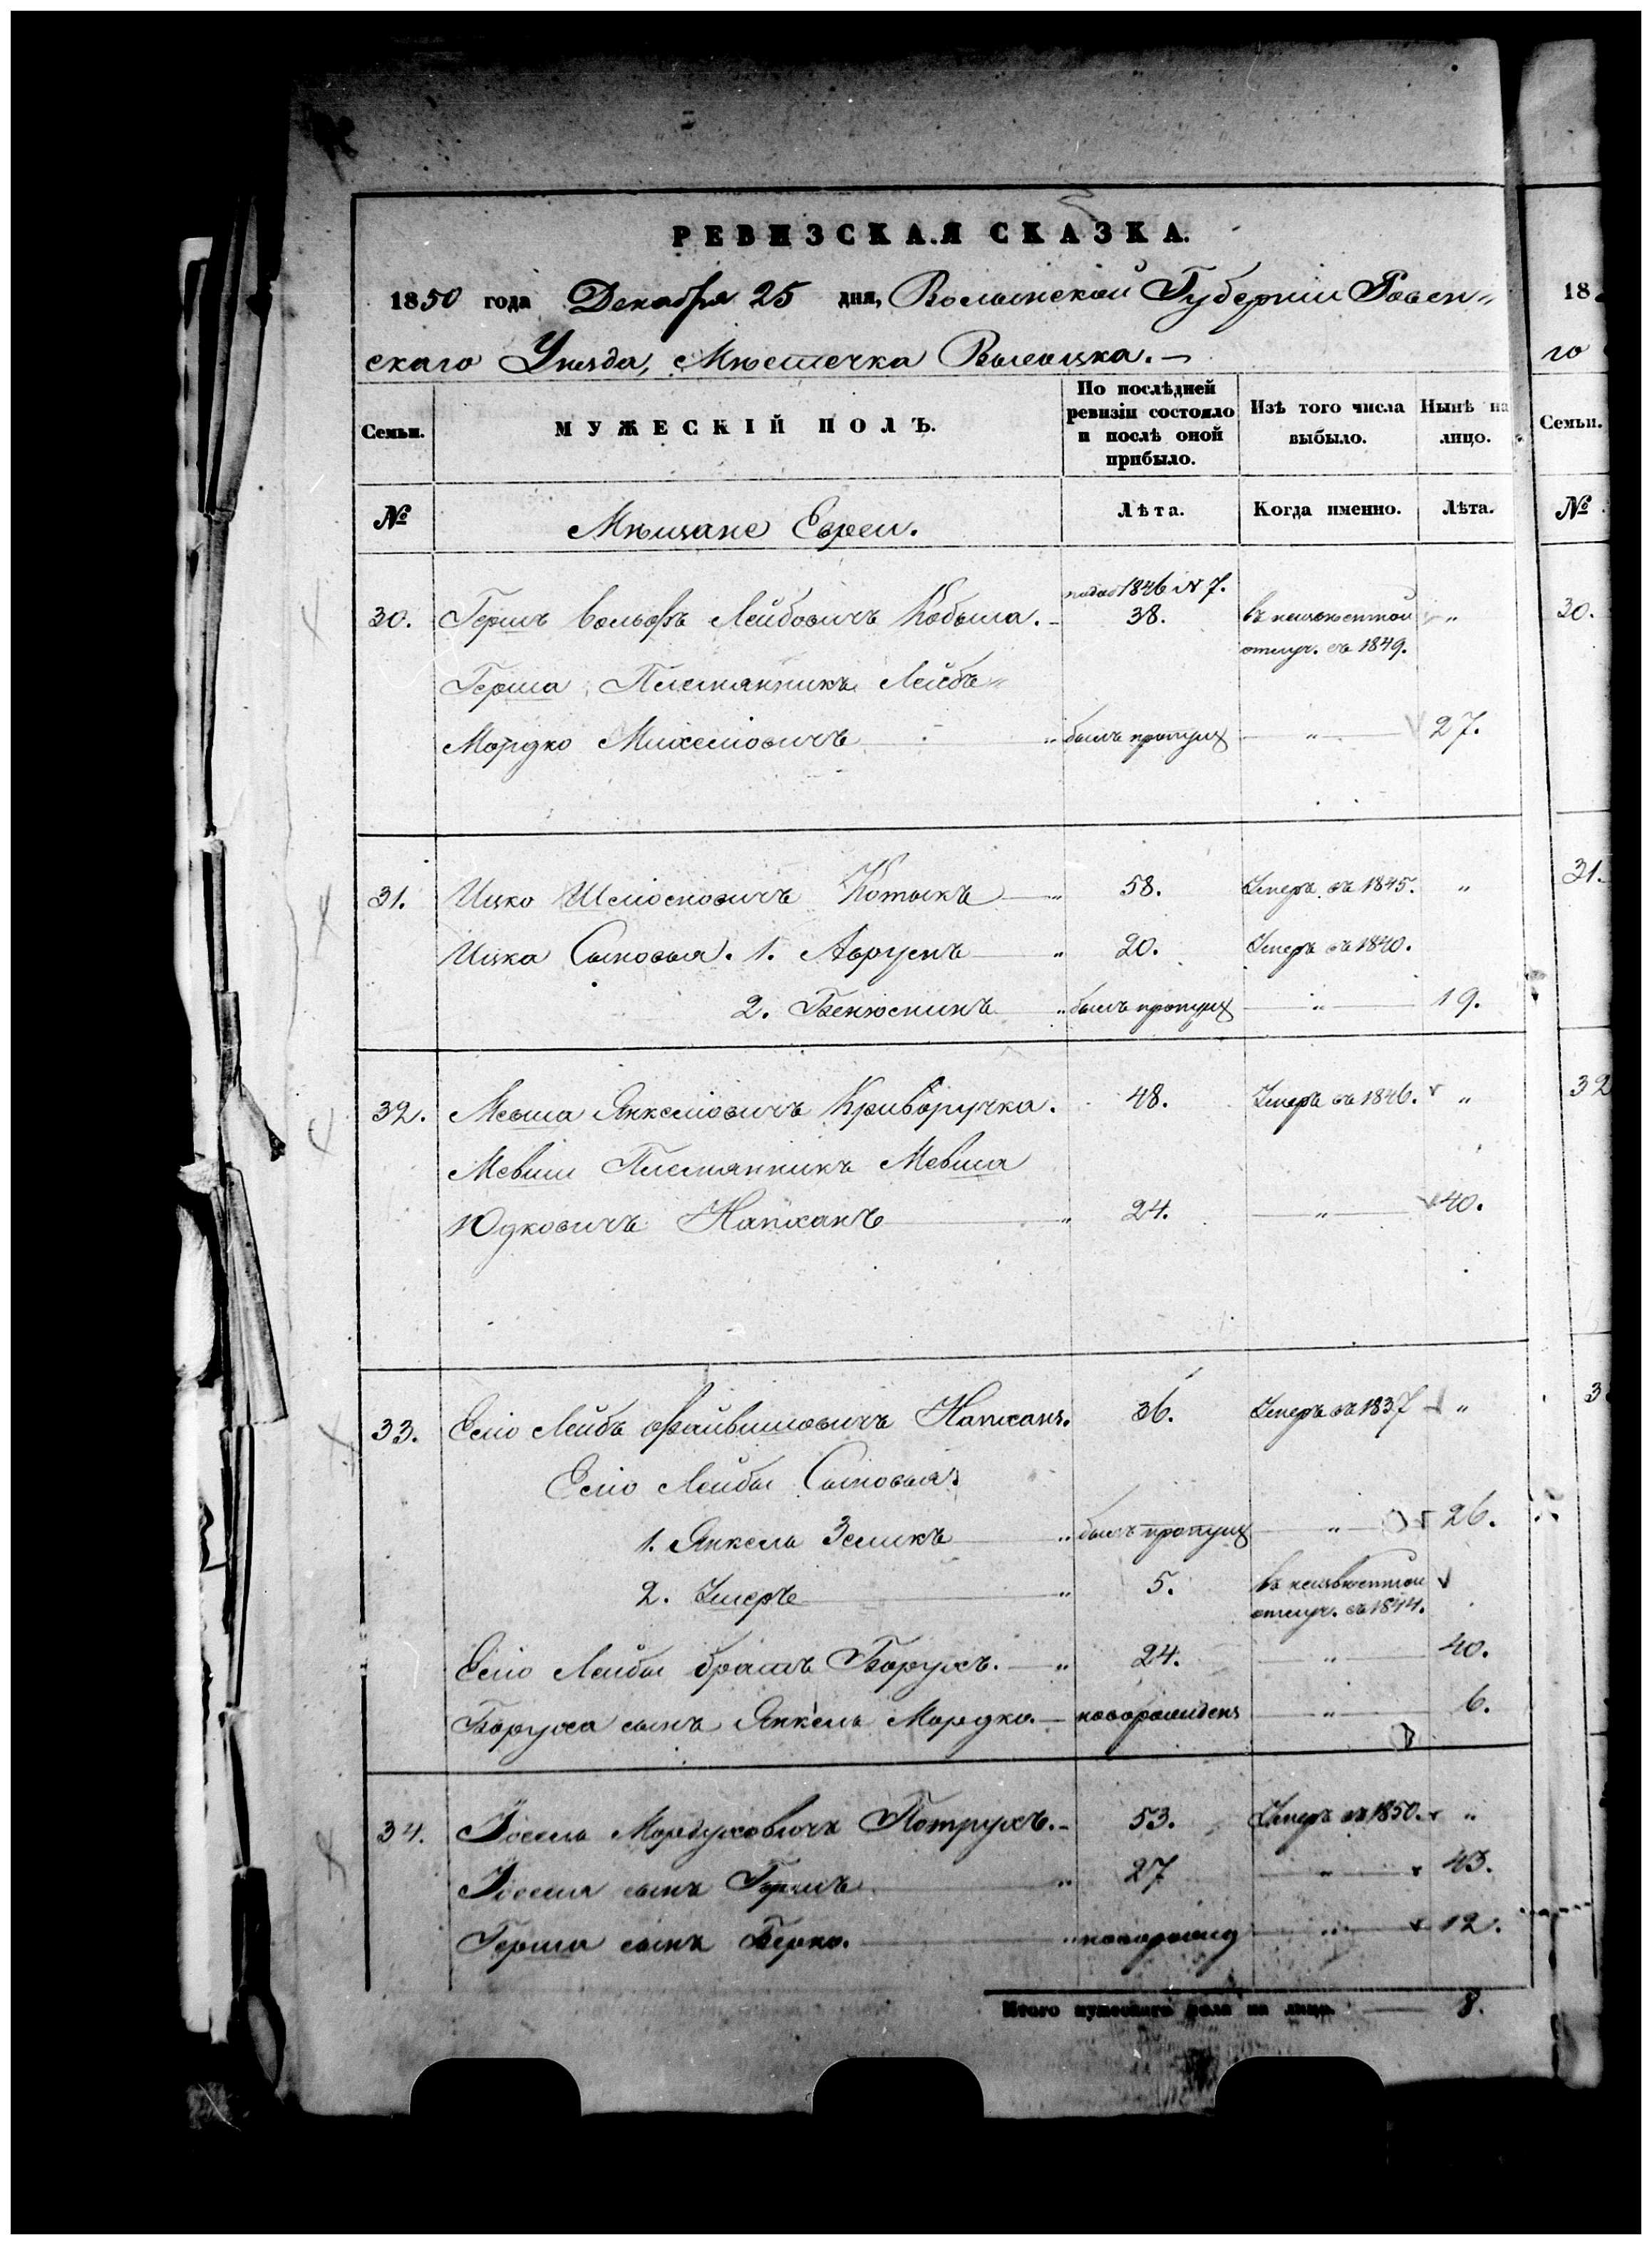 РЕВИЗСКАЯ СКАЗКА.
1850 года Декабря 25 дня, Волынской Губернии Ровен-
скаго Уѣзда, Мѣстечка Высоцка. —
Семьи.
МУЖЕСКІЙ ПОЛЪ.
По послѣдней ревизіи состояло и послѣ оной прибыло.
Изъ того числа выбыло.
Нынѣ на лицо.
№
Мѣщане Евреи.
Лѣта.
Когда именно.
Лѣта.
1846 № 7.
30. Гершъ Вольфъ Лейбовичъ Кобыла. — 38. въ неизвѣстной „
отлуч. съ 1849.
Герша Племянникъ Лейбъ
Мордко Михелювичъ — „ былъ пропущ — „ — 27.
31. Ицко Шліомовичъ Котыкъ — „ 58. Умеръ въ 1845. „
Ицка Сыновья. 1. Аврумъ — „ 20. Умеръ въ 1840.
2. Беніоминъ „ былъ пропущ — „ — 19.
32. Мевша Янкеліовичъ Криворучка. 48. Умеръ въ 1846. „
Мевши Племянникъ Мевша
Юдковичъ Напханъ — „ 24. — „ — 40.
33. Еліо Лейбъ Файвишовичъ Напханъ. 36. Умеръ въ 1837 „
Еліо Лейбы Сыновья:
1. Янкель Зеликъ — „ былъ пропущ — „ — 26.
2. Умеръ — „ 5. въ неизвѣстной
отлуч. съ 1844.
Еліо Лейбы братъ Борухъ. — „ 24. — „ — 40.
Боруха сынъ Янкель Мордко. — новорожденъ — „ — 6.
34. Іосель Мордуховичъ Потрухъ. — 53. Умеръ въ 1850. „
Іоселя сынъ Гершъ — „ 27 — „ — 43.
Герша сынъ Берко. — „ новорожд — „ — 12.
Итого мужескаго пола на лицо — 8.
18
го
Семьи.
№
30.
31.
32
3